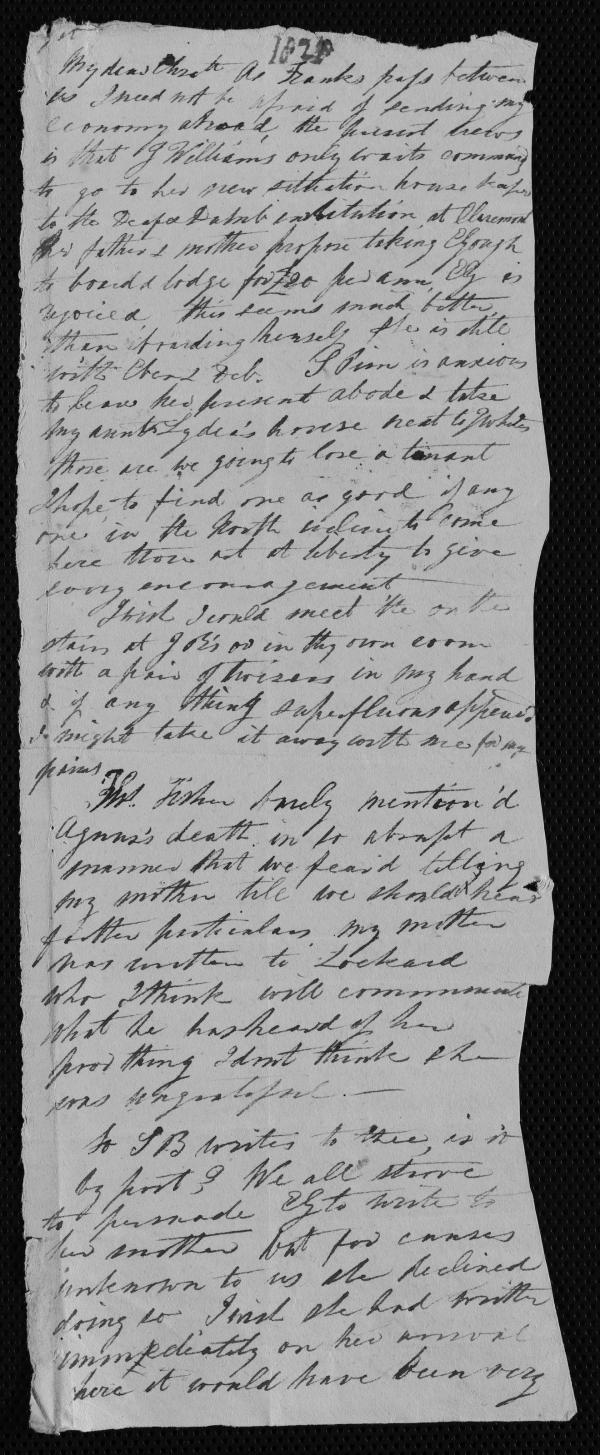 1824
My dear Chrsth As Franks pass between
us I need not be afraid of sending my
economy abroad, the present news
is that J Williams only waits command
to go to her new situation house keeper
to the Deaf & Dumb institution at Claremont
her father & mother propose taking EGough
to board & lodge for £20 per ann, EG is
rejoiced this seems much better
than boarding herself she is still
with Eben & Deb. S Pim is anxious
to leave her present abode & take
my aunt Lydia's house next to J Whites
those are we going to lose a tenant
I hope to find one as good if any
one in the North incline to come
here thou art at liberty to give
every encouragement
I wish I could meet the on the
stairs at J B's or in thy own room
with a pair of twizers in my hand
& if any thing superfluous appeared
I might take it away with me for my
pains
Ths. Fisher barely mention'd
Agnus's death in so abrupt a
manner that we fear'd telling
my mother till we should hear
further particulars my mother
has written to Lockard
who I think will communicate
what he has heard of her
poor thing I dont think she
was ungrateful. —
So S B writes to thee, is it
by post? We all strove
to persuade EG to write to
her mother but for causes
unknown to us she declined
doing so I wish she had written
immediately on her arrival
here it would have been very